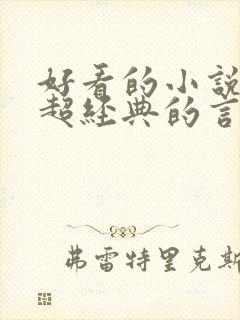 好看的小說
超經典的言
弗雷特里克斯